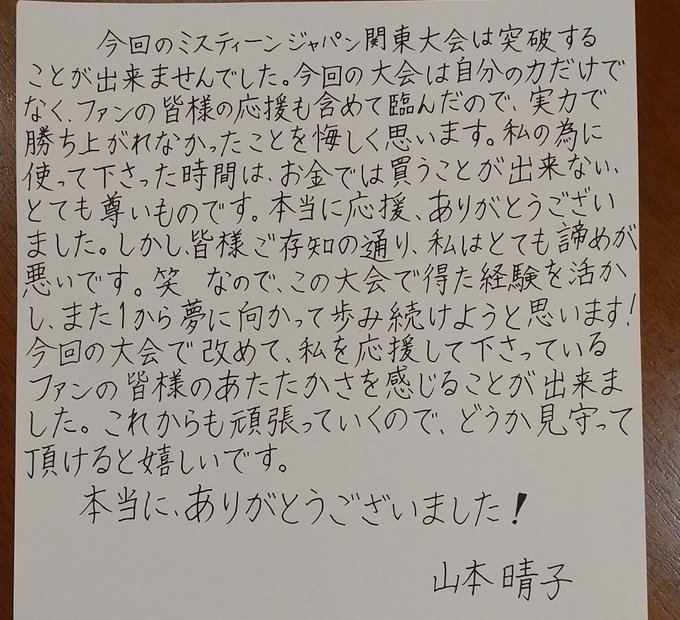 今回のミスティーンジャパン関東大会は突破する
ことが出来ませんでした。今回の大会は自分の力だけで
なく、ファンの皆様の応援も含めて臨んだので、実力で
勝ち上がれなかったことを悔しく思います。私の為に
使って下さった時間は、お金では買うことが出来ない、
とても尊いものです。本当に応援、ありがとうござい
ました。しかし、皆様ご存知の通り、私はとても諦めが
悪いです。笑 なので、この大会で得た経験を活か
し、また1から夢に向かって歩み続けようと思います!
今回の大会で改めて、私を応援して下さっている
ファンの皆様のあたたかさを感じることが出来ま
した。これからも頑張っていくので、どうか見守って
頂けると嬉しいです。
本当に、ありがとうございました!
山本晴子